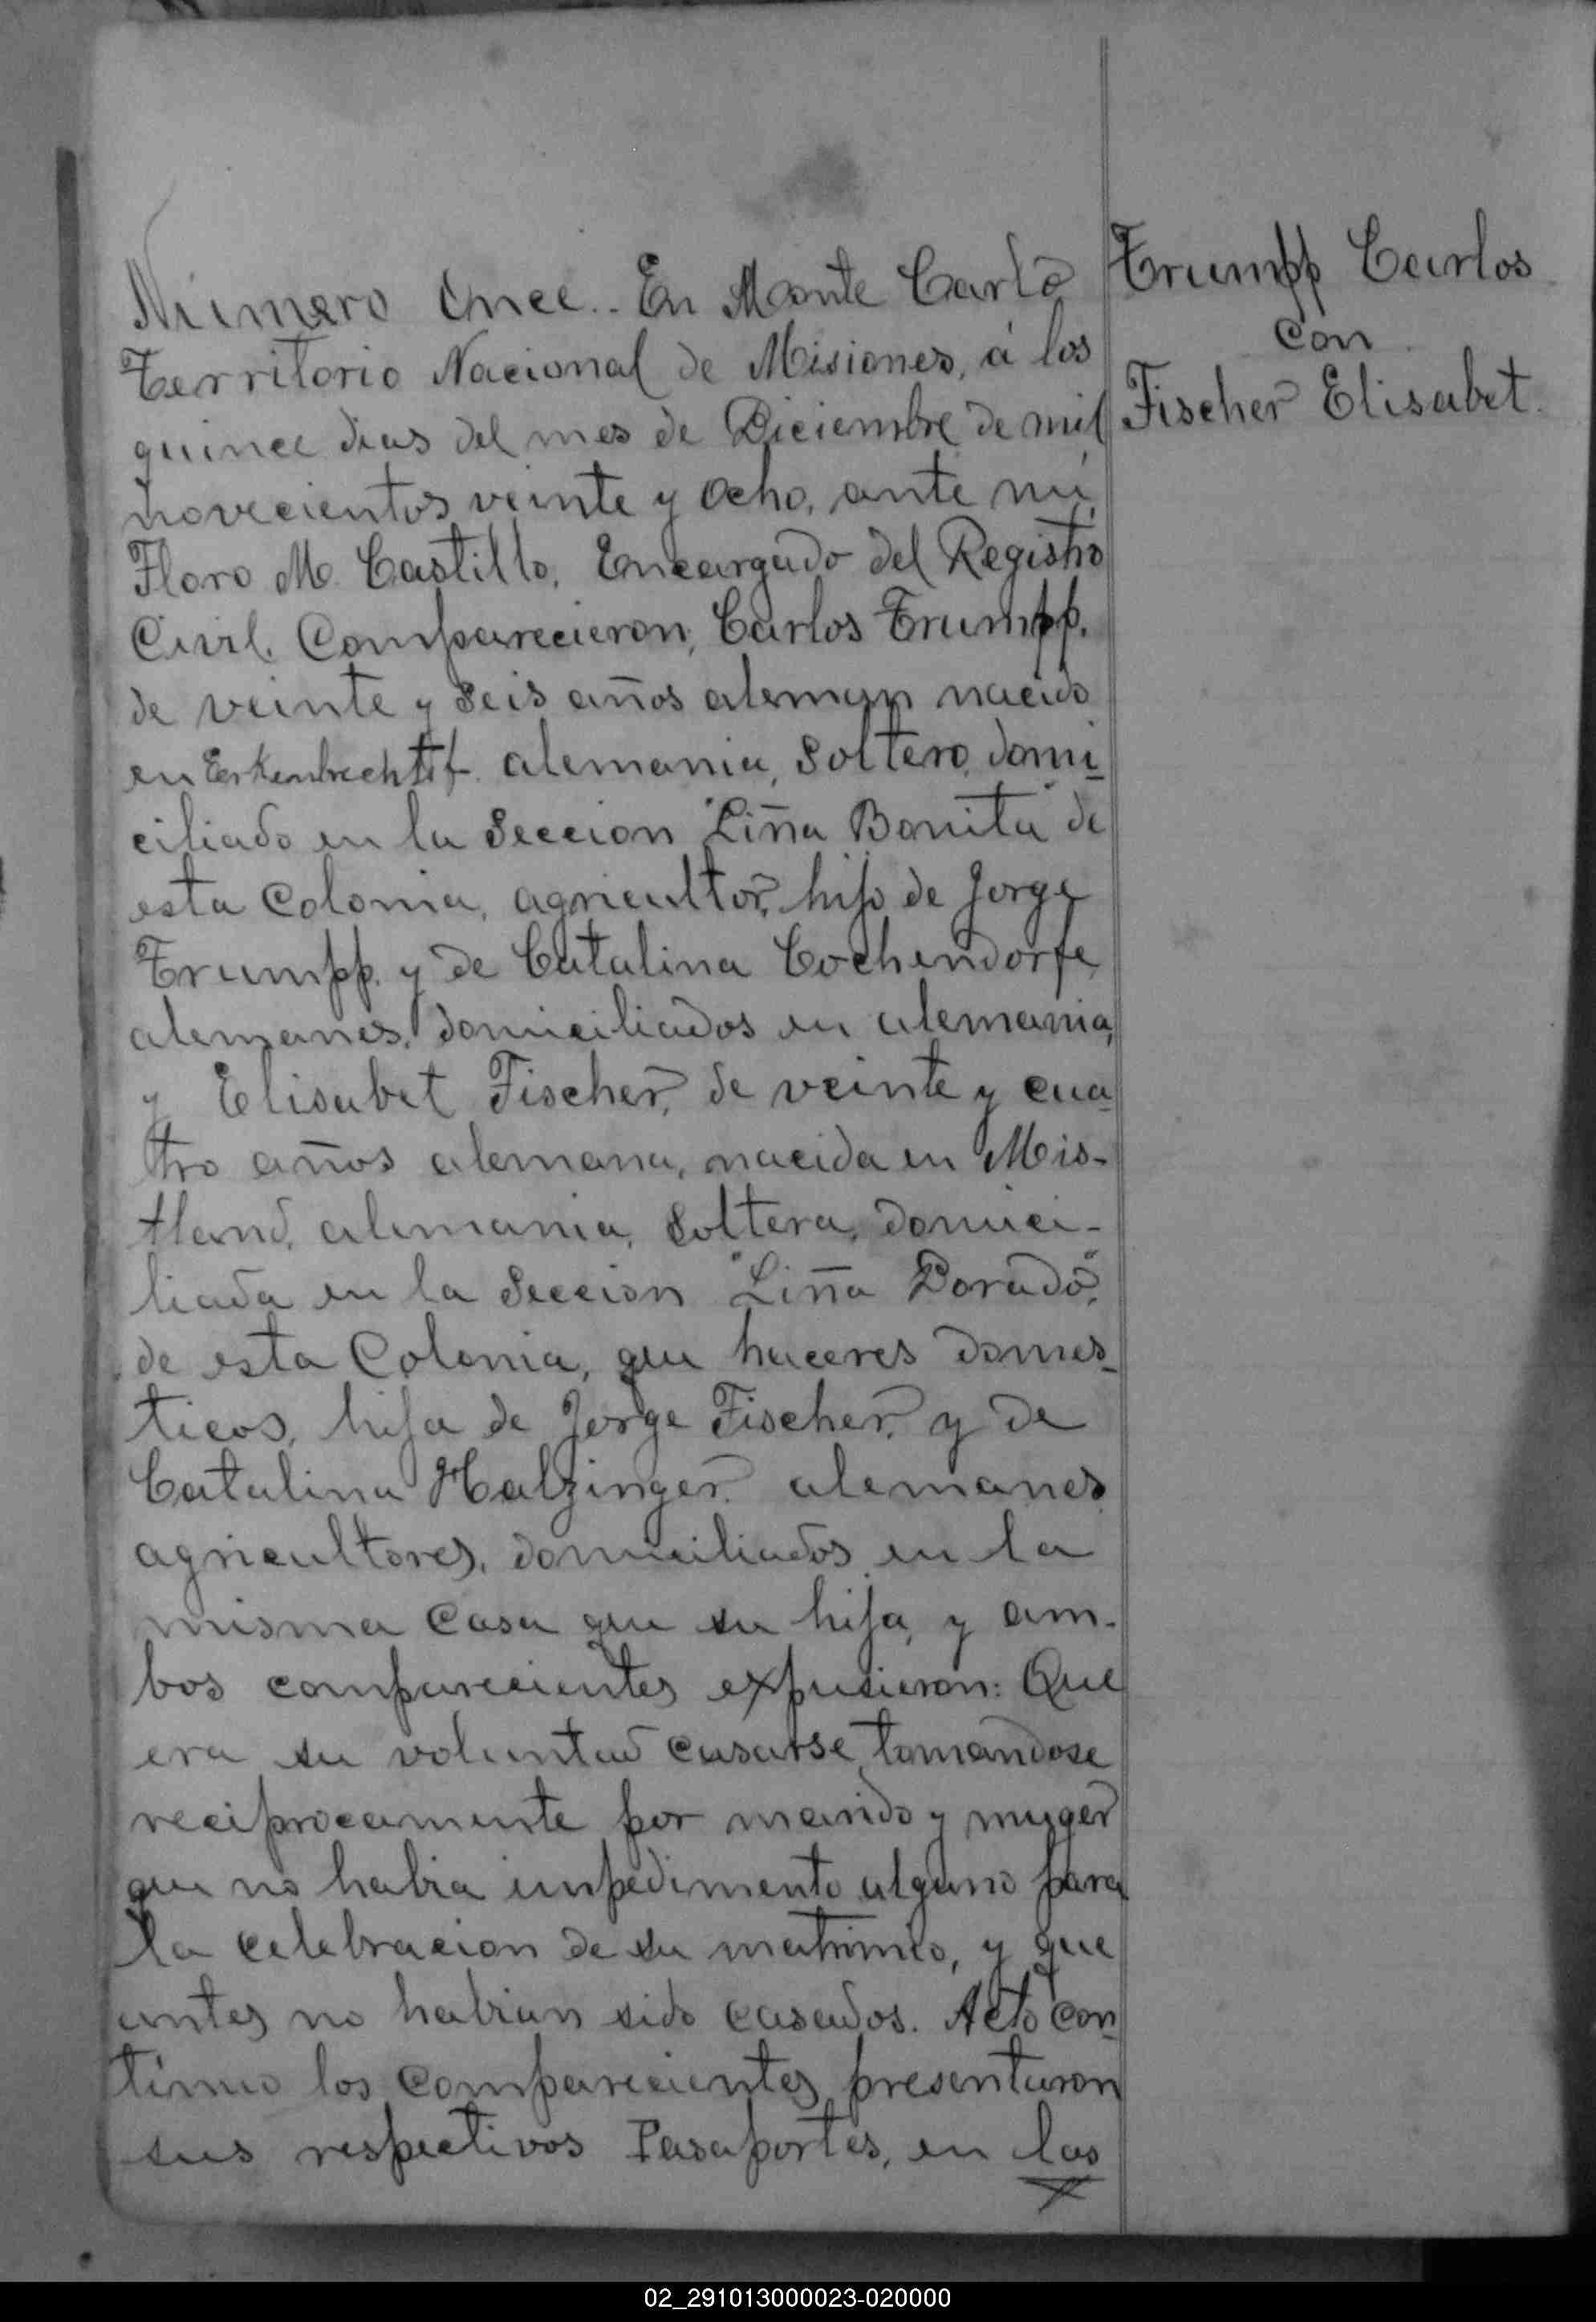 Trumpp Carlos
con
Fischer Elisabet.
Número Once.. En Monte Carlo
Territorio Nacional de Misiones, á los
quince dias del mes de Diciembre de mil
novecientos veinte y ocho, ante mi,
Floro M. Castillo, Encargado del Registro
Civil. Comparecieron, Carlos Trumpp.
de veinte y seis años aleman nacido
en alemania, soltero, domi-
ciliado en la seccion "Liña Bonita" de
esta Colonia, agricultor, hijo de Jorge
Trumpp. y de Catalina Cochendorfe,
alemanes, domiciliados en alemania,
y Elisabet Fischer, de veinte y cua-
tro años alemana, nacida en Mis-
tland, alemania, soltera, domici-
liada en la seccion "Liña Dorado",
de esta Colonia, que haceres domes-
ticos, hija de Jorge Fischer, y de
Catalina Halzinger. alemanes
agricultores, domiciliados en la
misma casa que su hija, y am-
bos comparecientes expusieron: Que
era su voluntad casarse, tomandose
reciprocamente por marido y muger
que no habia impedimento alguno para
la celebracion de su matrimio, y que
antes no habian sido casados. Acto con-
tinuo los comparecientes presentaron
sus respectivos Pasaportes, en las
02_291013000023-020000